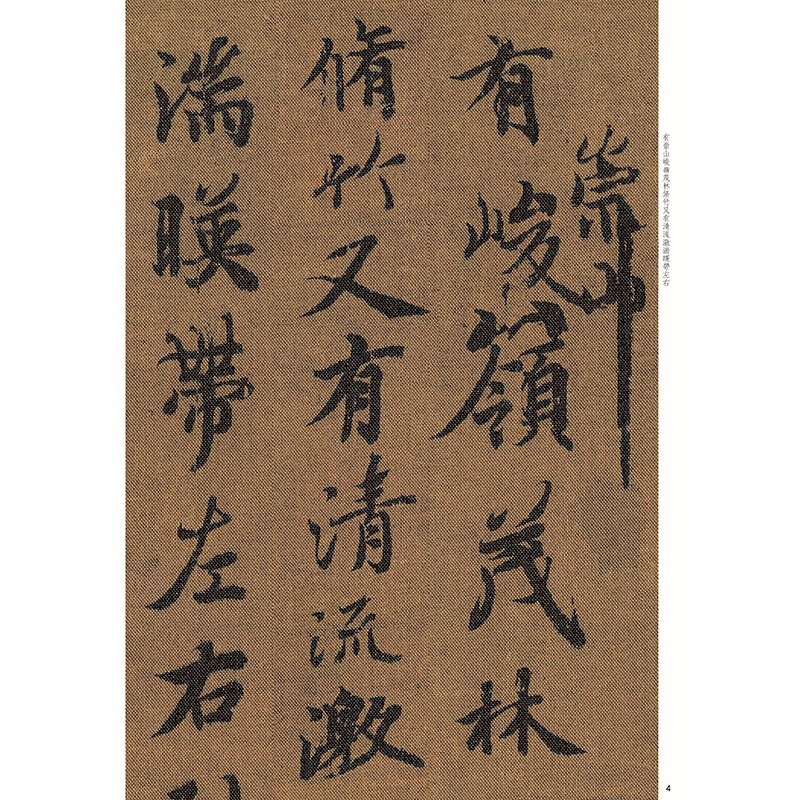 有崇山峻嶺茂林脩竹又有清流激湍暎帶左右
崇山
有峻嶺茂林
脩竹又有清流激
湍暎帶左右
4